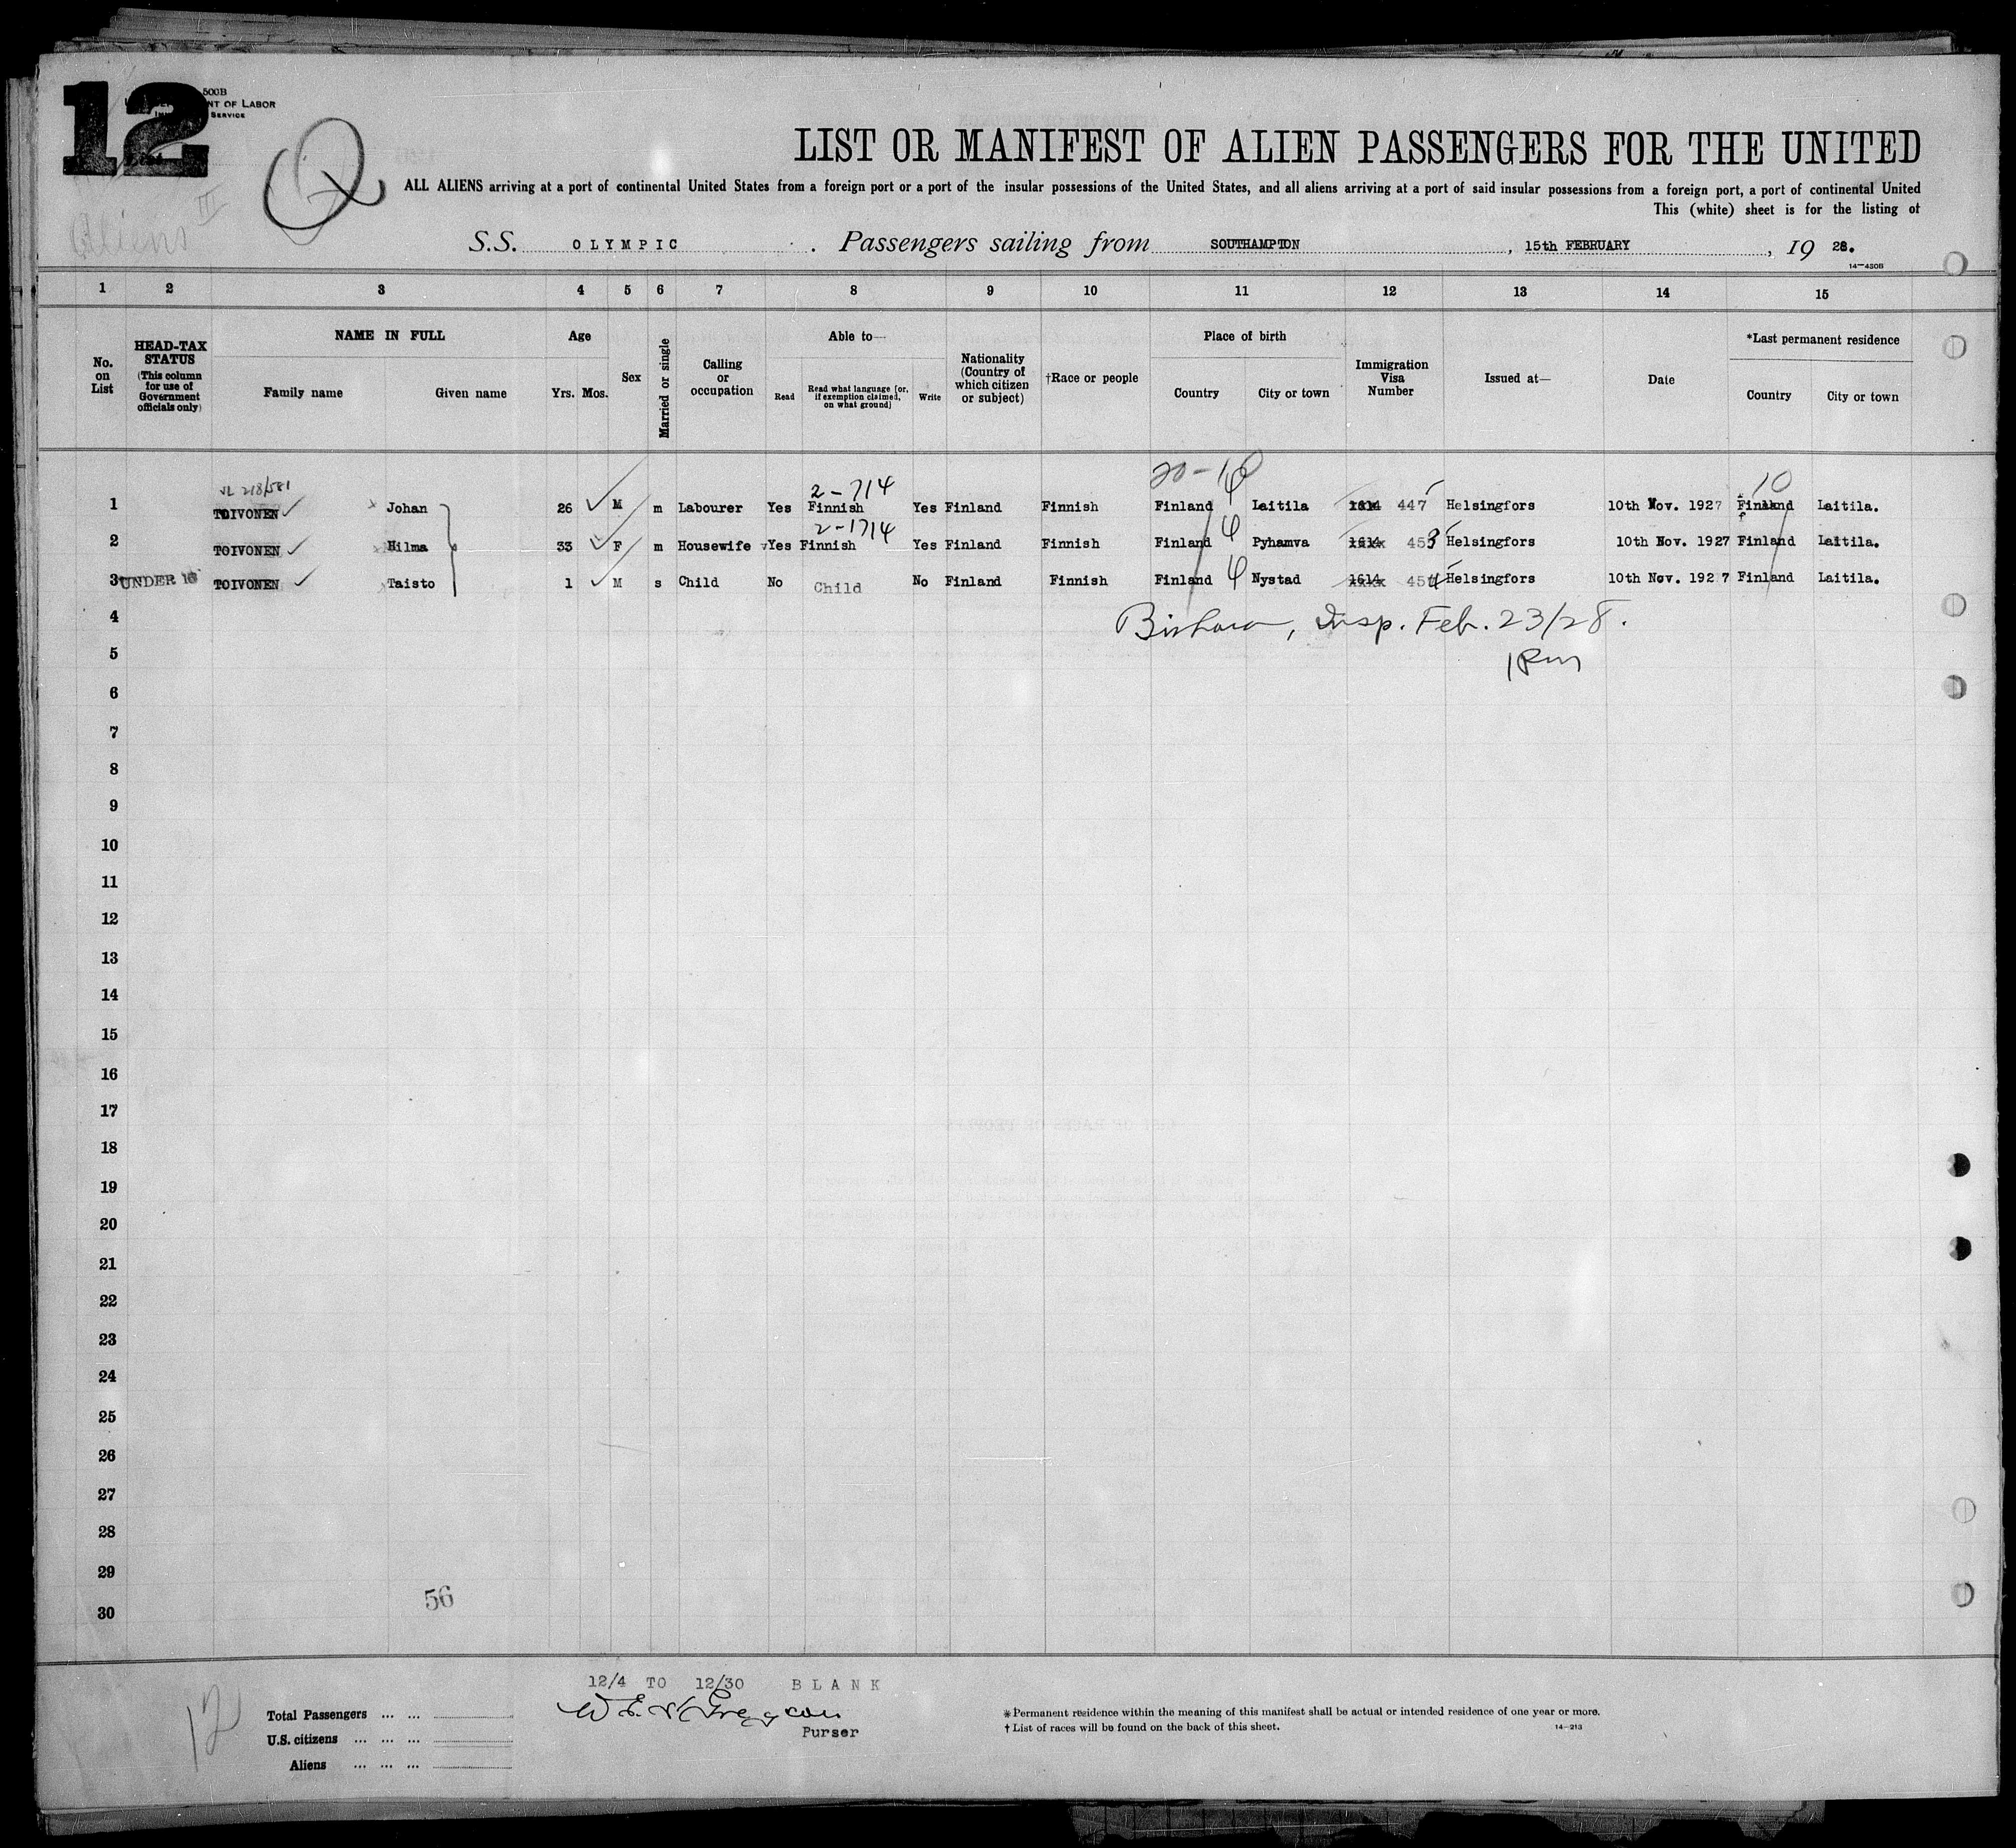 12
500B
NT OF LABOR
SERVICE
List
Aliens III
LIST OR MANIFEST OF ALIEN PASSENGERS FOR THE UNITED
ALL ALIENS arriving at a port of continental United States from a foreign port or a port of the insular possessions of the United States, and all aliens arriving at a port of said insular possessions from a foreign port, a port of continental United
This (white) sheet is for the listing of
S.S. OLYMPIC. Passengers sailing from SOUTHAMPTON, 15th FEBRUARY, 19 28.
14-430B
1 2 3 4 5 6 7 8 9 10 11 12 13 14 15
No. on List
HEAD-TAX STATUS (This column for use of Government officials only)
NAME IN FULL
Family name Given name
Age
Yrs. Mos.
Sex
Married or single
Calling or occupation
Able to—
Read Read what language (or, if exemption claimed, on what ground) Write
Nationality (Country of which citizen or subject)
†Race or people
Place of birth
Country City or town
Immigration Visa Number
Issued at—
Date
*Last permanent residence
Country City or town
2-714 20-10 10
1 TOIVONEN Johan 26 M m Labourer Yes Finnish Yes Finland Finnish Finland Laitila 1614 447 Helsingfors 10th Nov. 1927 Finland Laitila.
2-1714
2 TOIVONEN Hilma 33 F m Housewife Yes Finnish Yes Finland Finnish Finland Pyhamva 1614 453 Helsingfors 10th Nov. 1927 Finland Laitila.
3 UNDER 16 TOIVONEN Taisto 1 M s Child No Child No Finland Finnish Finland Nystad 1614 454 Helsingfors 10th Nov. 1927 Finland Laitila.
4 Insp. Feb. 23/28.
5
6
7
8
9
10
11
12
13
14
15
16
17
18
19
20
21
22
23
24
25
26
27
28
29
56
30
12/4 TO 12/30 BLANK
12
Total Passengers ... ...
U.S. citizens ... ... ...
Aliens ... ... ...
Purser
* Permanent residence within the meaning of this manifest shall be actual or intended residence of one year or more.
† List of races will be found on the back of this sheet.
14-213